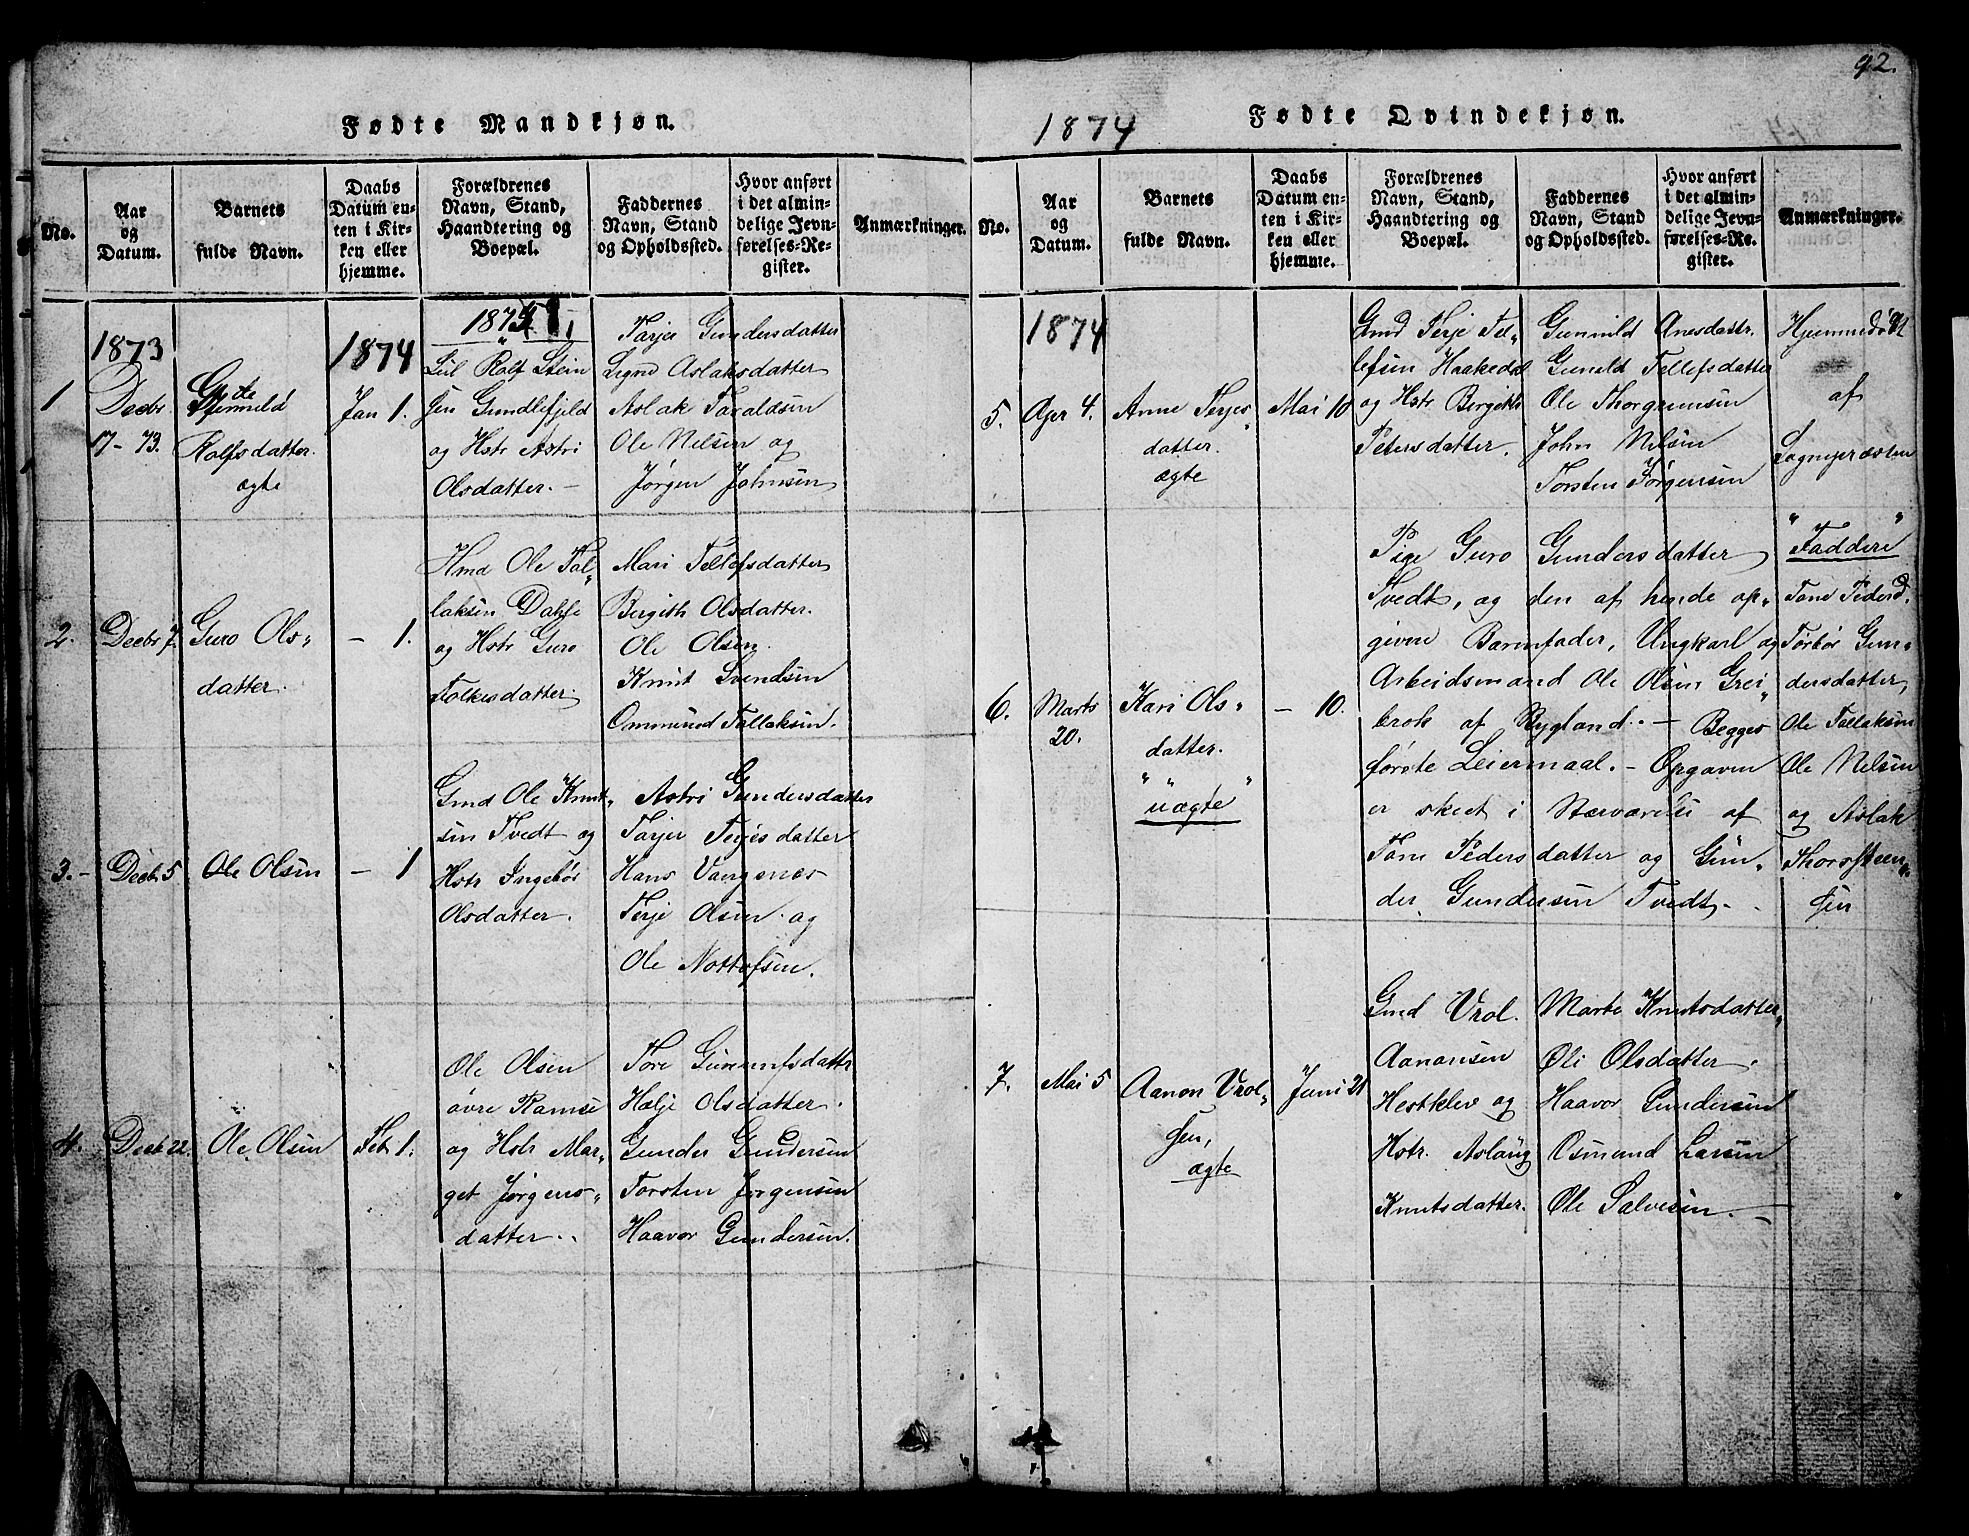 92.
Fødte Mandkjøn.
No.
Aar
og
Datum.
Barnets
fulde Navn.
Daabs
Datum en-
ten i Kir-
ken eller
hjemme.
Forældrenes
Navn, Stand,
Haandtering og
Boepæl.
Faddernes
Navn, Stand
og Opholdssted.
Hvor anført
i det almin-
delige Jevn-
førelses-Re-
gister.
Anmærkninger.
1
1873
Decbr.
17-73.
Rolfsdatter.
ægte
1874
Jan 1.
Rolf Stein
sen Gundlefjeld
og Hstr Astri
Olsdatter. -
Tarjer Gundersdatter
Signe Aslaksdatter
Aslak Taraldsen
Ole Nelsen og
Jørgen Johnsen
2.
Decbr 7.
Guro Ols"
datter.
- 1.
Hmd Ole Tal"
laksen Dahle
og Hstr Guro
Folkesdatter
Mari Tellefsdatter
Bergith Olsdatter.
Ole Olsen.
Knut Svendsen
Ommund Tallaksen.
3. -
Decbr 5
Ole Olsen
- 1
Gmd Ole Knut"
sen Tvedt og
Hstr Ingebør
Olsdatter.
Astri Gundersdatter
Tarjer Terjesdatter
Hans Vangenes
Terje Olsen og
Ole Nottofsen.
4.
Decbr 22.
Ole Olsen
Feb 1.
Ole Olsen
øvre Ramse
og Hstr Mar"
get Jørgens"
datter..
Tore Gunnufsdattr
Hælje Olsdatter.
Gunder Gundersen
Torsten Jørgensen
Haavor Gundersen.
1874
Fødte Qvindekjøn.
No.
Aar
og
Datum.
Barnets
fulde Navn.
Daabs
Datum en-
ten i Kir-
ken eller
hjemme.
Forældrenes
Navn, Stand,
Haandtering og
Boepæl.
Faddernes
Navn, Stand
og Opholdssted.
Hvor anført
i det almin-
delige Jevn-
førelses-Re-
gister.
Anmærkninger.
1874
5.
Apr 4.
Anne Terjes"
datter.
ægte
Mai 10
Gmd Terje Tel"
lefsen Haakedal
og Hstr Bergith
Petersdatter.
Gunnild Anesdattr.
Gunild Tellefsdatter
Ole Thorgrimsen
John Nelsen
Torsten Jørgensen
Hjemmedøbt
af
Sognepræsten
6.
Marts
20.
Kari Ols"
datter.
" uægte "
- 10.
Pige Guro Gundersdatter
Tvedt, og den af hende op"
givne Barnefader, Ungkarl og
Arbeidsmand Ole Olsen Grei"
brok af Rygland.. - Begges
første Leiermaal. - Opgaven
er skeet i Nærværelse af
Tone Pedersdatter og Gun"
der Gundersen Tvedt. -
" Faddere "
Tone Pedersd.
Tørbør Gun"
dersdatter,
Ole Tallaksen
Ole Nelsen
og Aslak
Thorsteen"
sen
7.
Mai 5
Aanon Vrol"
sen,
ægte
Juni 21
Gmd Vrol.
Aanonsen
Hestklev og
Hstr. Aslaug
Knutsdatter.
Marte Knutsdatter"
Oli Olsdatter.
Haavor Gundersen
Osmund Larsen
Ole Salvesen. -